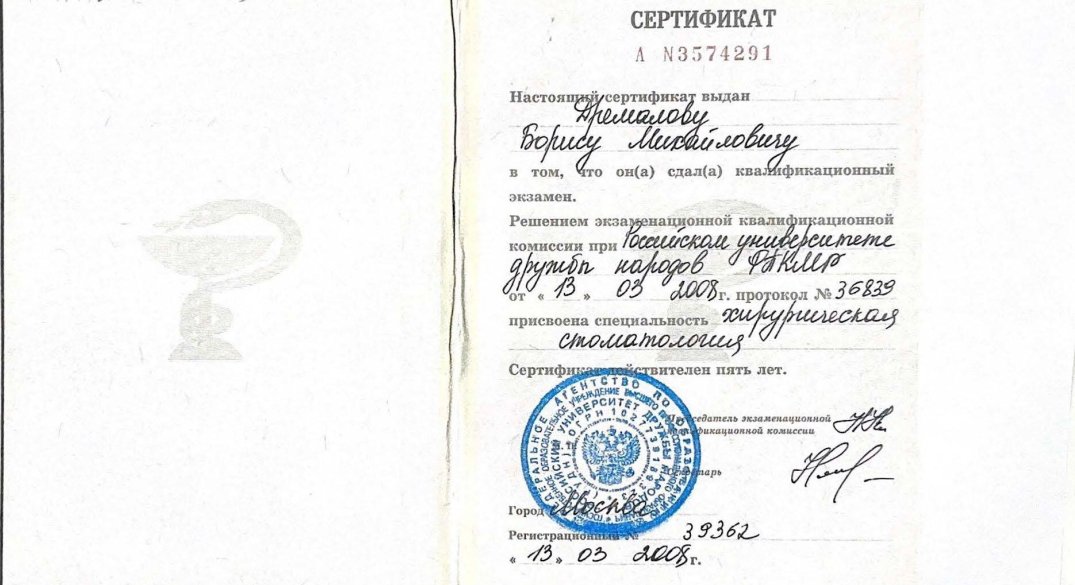 СЕРТИФИКАТ
А №3574291
Настоящий сертификат выдан
Дремалову
Борису Михайловичу
в том, что он(а) сдал(а) квалификационный
экзамен.
Решением экзаменационной квалификационной
комиссии при Российском университете
дружбы народов ФПКМР
от « 13 » 03 2008 г. протокол № 36839
присвоена специальность хирургическая
стоматология
Сертификат действителен пять лет.
ФЕДЕРАЛЬНОЕ АГЕНТСТВО ПО ОБРАЗОВАНИЮ
РОССИЙСКИЙ УНИВЕРСИТЕТ ДРУЖБЫ НАРОДОВ
Председатель экзаменационной
квалификационной комиссии
Секретарь
Город Москва
Регистрационный № 39362
« 13 » 03 2008 г.